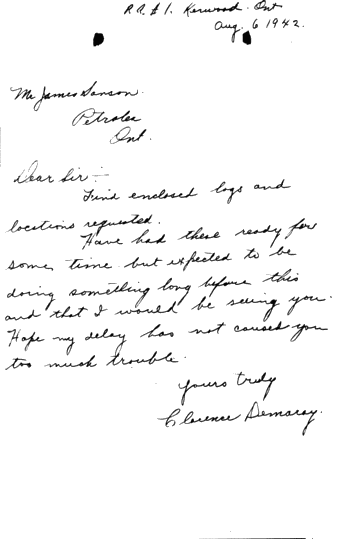 R.R. # 1. Kerwood. Ont
Aug. 6 1942.
Mr James Sanson.
Petrolea
Ont.
Dear Sir :-
Find enclosed logs and
locations requested.
Have had these ready for
some time but expected to be
doing something long before this
and that I would be seeing you.
Hope my delay has not caused you
too much trouble.
Yours truly
Clarence Demaray.